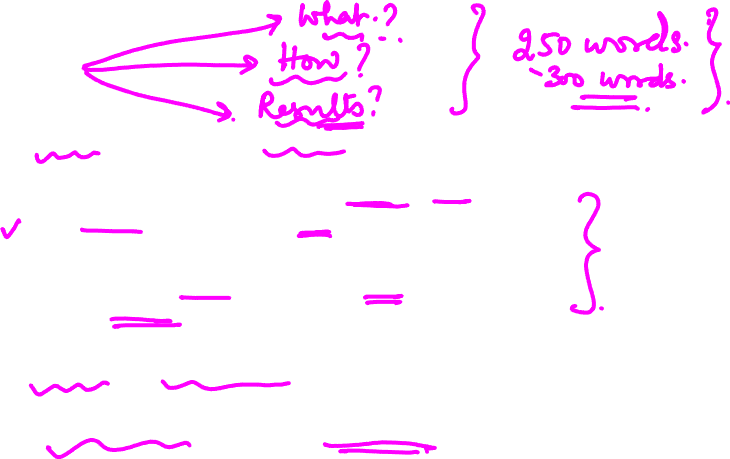 What..?
How?
Results?
250 words.
~300 words.